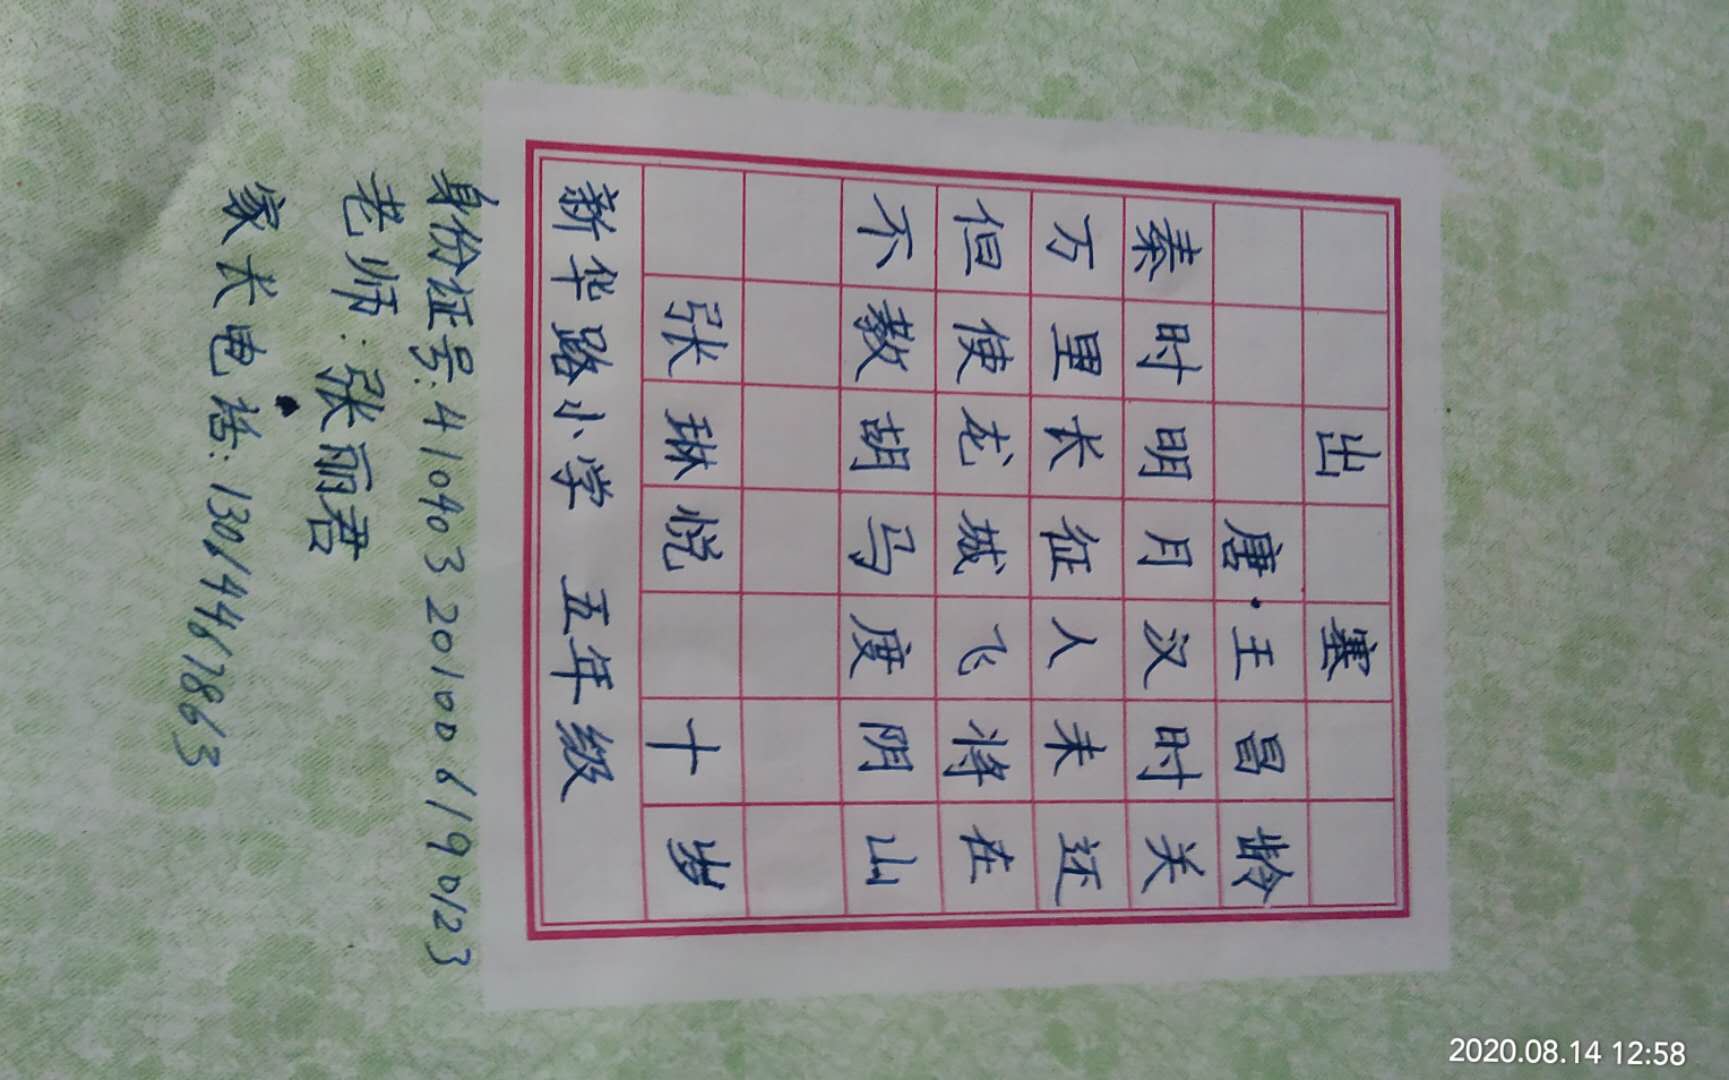 出塞
唐·王昌龄
秦时明月汉时关
万里长征人未还
但使龙城飞将在
不教胡马度阴山
张琳悦 十岁
新华路小学 五年级
身份证号:410403201006190123
老师:张丽君
家长电话:13064467863
2020.08.14 12:58